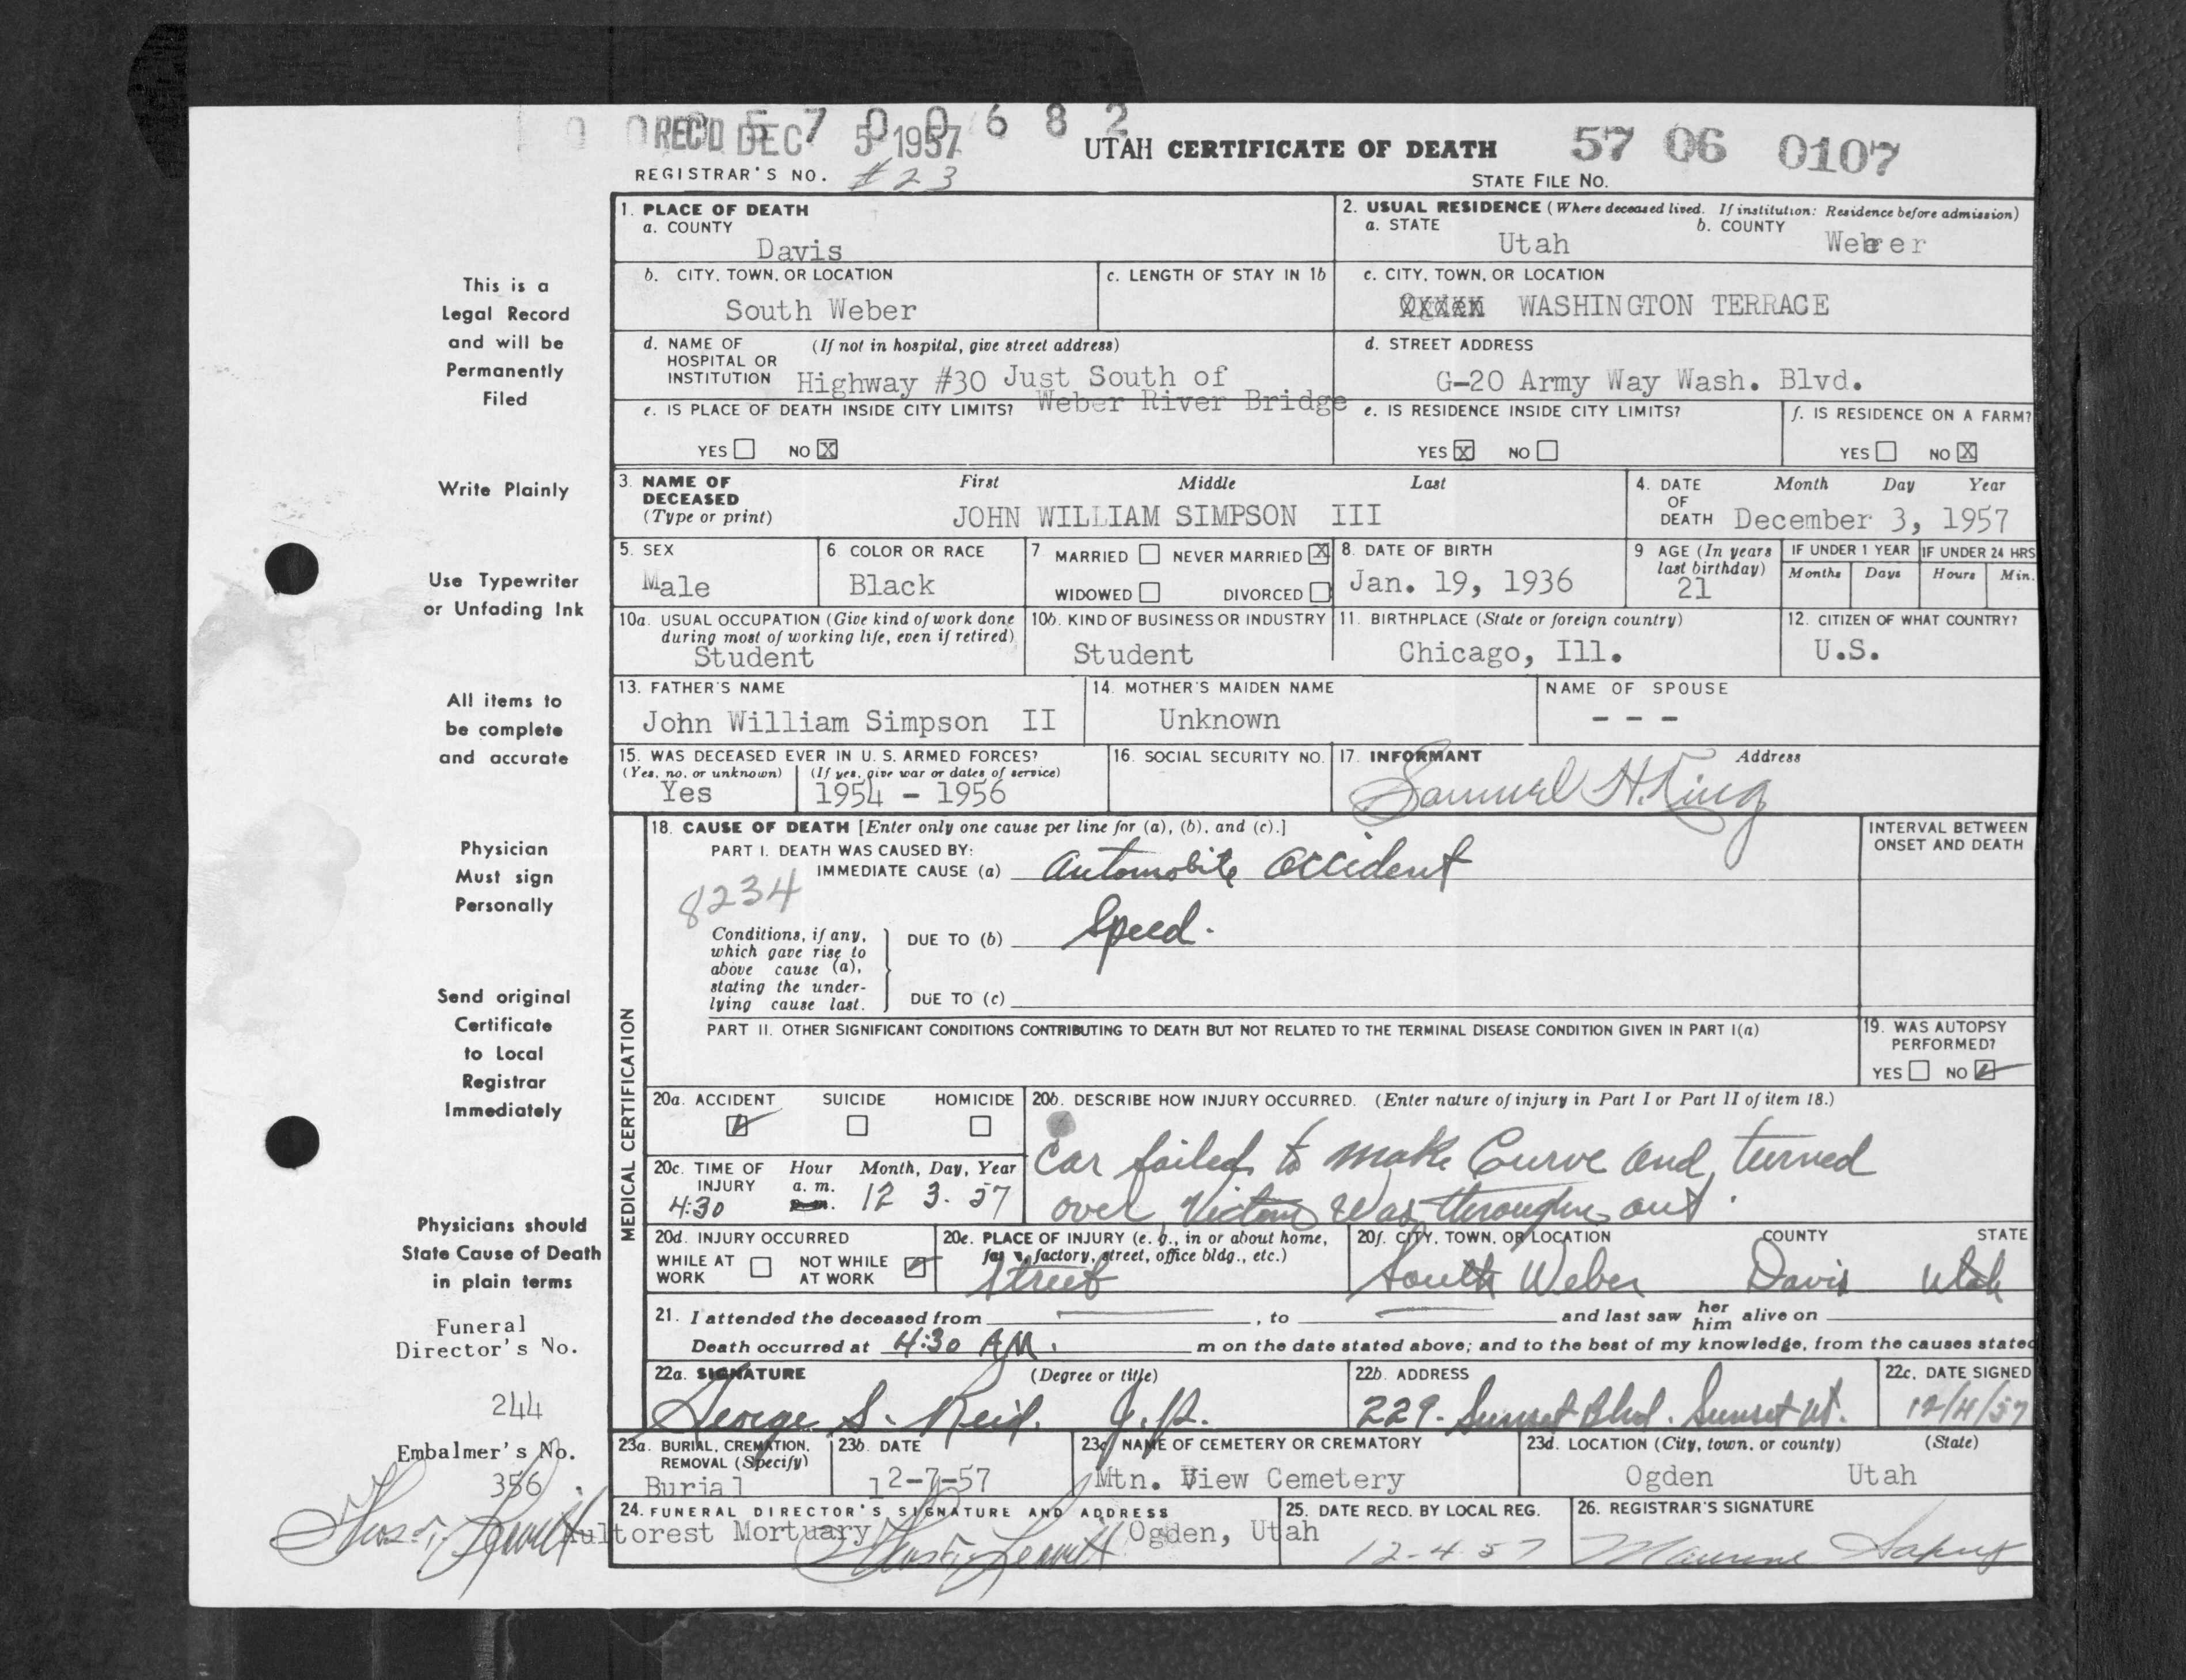 REC'D DEC 5 1957
5 7 0 0 6 8 2
UTAH CERTIFICATE OF DEATH 57 06 0107
REGISTRAR'S NO. #23
STATE FILE NO.
1. PLACE OF DEATH
a. COUNTY
Davis
2. USUAL RESIDENCE (Where deceased lived. If institution: Residence before admission)
a. STATE
Utah
b. COUNTY
Weber
b. CITY, TOWN, OR LOCATION
South Weber
c. LENGTH OF STAY IN 1b
c. CITY, TOWN, OR LOCATION
WASHINGTON TERRACE
d. NAME OF HOSPITAL OR INSTITUTION
(If not in hospital, give street address)
Highway #30 Just South of
Weber River Bridge
d. STREET ADDRESS
G-20 Army Way Wash. Blvd.
e. IS PLACE OF DEATH INSIDE CITY LIMITS?
YES NO X
e. IS RESIDENCE INSIDE CITY LIMITS?
YES X NO
f. IS RESIDENCE ON A FARM?
YES NO X
3. NAME OF DECEASED
(Type or print)
First Middle Last
JOHN WILLIAM SIMPSON III
4. DATE OF DEATH
Month Day Year
December 3, 1957
5. SEX
Male
6. COLOR OR RACE
Black
7. MARRIED NEVER MARRIED X
WIDOWED DIVORCED
8. DATE OF BIRTH
Jan. 19, 1936
9 AGE (In years last birthday)
21
IF UNDER 1 YEAR
Months Days
IF UNDER 24 HRS
Hours Min.
10a. USUAL OCCUPATION (Give kind of work done during most of working life, even if retired)
Student
10b. KIND OF BUSINESS OR INDUSTRY
Student
11. BIRTHPLACE (State or foreign country)
Chicago, Ill.
12. CITIZEN OF WHAT COUNTRY?
U.S.
13. FATHER'S NAME
John William Simpson II
14. MOTHER'S MAIDEN NAME
Unknown
NAME OF SPOUSE
- - -
15. WAS DECEASED EVER IN U. S. ARMED FORCES?
(Yes, no, or unknown)
Yes
(If yes, give war or dates of service)
1954 - 1956
16. SOCIAL SECURITY NO.
17. INFORMANT Address
Samuel H. King
MEDICAL CERTIFICATION
18. CAUSE OF DEATH [Enter only one cause per line for (a), (b), and (c).]
PART I. DEATH WAS CAUSED BY:
IMMEDIATE CAUSE (a) Automobile accident
8234
Conditions, if any, which gave rise to above cause (a), stating the underlying cause last.
DUE TO (b) Speed.
DUE TO (c)
INTERVAL BETWEEN ONSET AND DEATH
PART II. OTHER SIGNIFICANT CONDITIONS CONTRIBUTING TO DEATH BUT NOT RELATED TO THE TERMINAL DISEASE CONDITION GIVEN IN PART I(a)
19. WAS AUTOPSY PERFORMED?
YES NO
20a. ACCIDENT SUICIDE HOMICIDE
20b. DESCRIBE HOW INJURY OCCURRED. (Enter nature of injury in Part I or Part II of item 18.)
Car failed to make Curve and turned
over Victom was throughn out.
20c. TIME OF INJURY
Hour Month, Day, Year
a. m.
p. m.
4:30 12 3. 57
20d. INJURY OCCURRED
WHILE AT WORK NOT WHILE AT WORK
20e. PLACE OF INJURY (e. g., in or about home, farm, factory, street, office bldg., etc.)
Street
20f. CITY, TOWN, OR LOCATION COUNTY STATE
South Weber Davis Utah
21. I attended the deceased from , to and last saw her him alive on
Death occurred at 4:30 AM. m on the date stated above; and to the best of my knowledge, from the causes stated
22a. SIGNATURE (Degree or title)
George S. Reid. J.P.
22b. ADDRESS
229. Sunset Blvd. Sunset Ut.
22c. DATE SIGNED
12/4/57
23a. BURIAL, CREMATION, REMOVAL (Specify)
Burial
23b. DATE
12-7-57
23c. NAME OF CEMETERY OR CREMATORY
Mtn. View Cemetery
23d. LOCATION (City, town, or county) (State)
Ogden Utah
24. FUNERAL DIRECTOR'S SIGNATURE AND ADDRESS
Mortuary Ogden, Utah
25. DATE RECD. BY LOCAL REG.
12-4-57
26. REGISTRAR'S SIGNATURE
Maurine
This is a
Legal Record
and will be
Permanently
Filed
Write Plainly
Use Typewriter
or Unfading Ink
All items to
be complete
and accurate
Physician
Must sign
Personally
Send original
Certificate
to Local
Registrar
Immediately
Physicians should
State Cause of Death
in plain terms
Funeral
Director's No.
244
Embalmer's No.
356